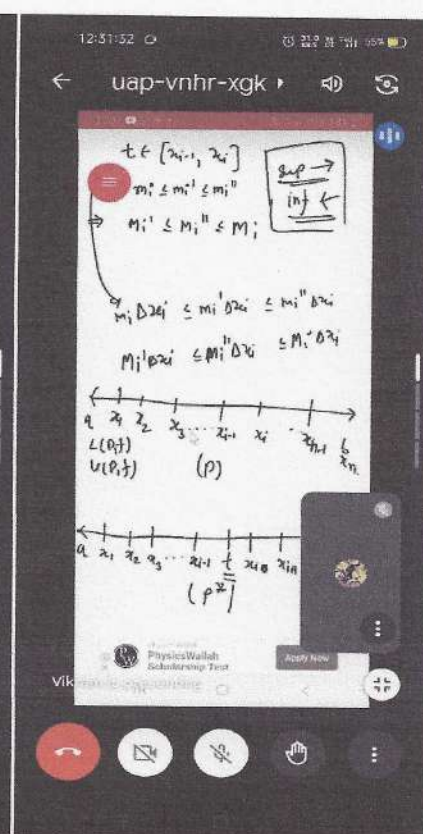 12:31:32
55%
uap-vnhr-xgk
t ∈ [x_{i-1}, x_i]
sup →
inf ←
m_i ≤ m_i' ≤ m_i''
⇒ M_i' ≤ M_i'' ≤ M_i
m_i Δx_i ≤ m_i' Δx_i ≤ m_i'' Δx_i
M_i' Δx_i ≤ M_i'' Δx_i ≤ M_i Δx_i
a x_1 x_2 x_3 ..... x_{i-1} x_i .. x_{n-1} b
x_n
L(P,f)
U(P,f) (P)
a x_1 x_2 x_3 ..... x_{i-1} t
(P*)
PW PhysicsWallah
Scholarship Test
Apply Now
Vik